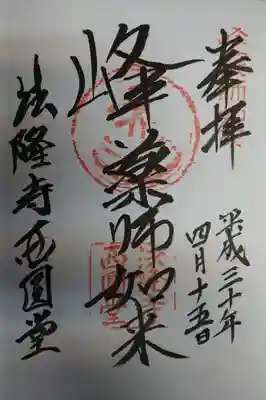 奉拝
平成三十年
四月十五日
峰薬師如来
法隆寺西圓堂
西圓堂